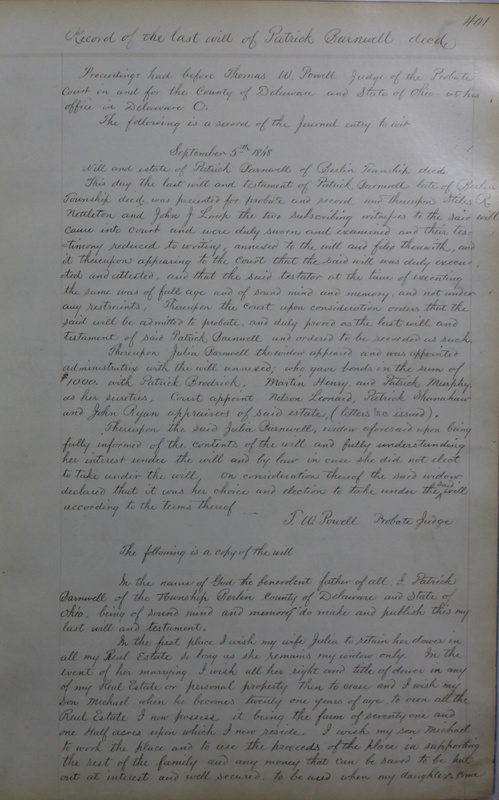 401
Record of the last will of Patrick Barnwell decd,
Proceedings had before Thomas W. Powell Judge of the Probate
Court in and for the County of Delaware and State of Ohio at his
office in Delaware O.
The following is a record of the Journal entry to wit
September 5th 1868
Will and estate of Patrick Barnwell of Berlin Township decd
This day the last will and testament of Patrick Barnwell late of Berlin
Township decd, was presented for probate and record and thereupon Stiles R.
Nettleton and John J Loop the two subscribing witnesses to the said will
came into Court and were duly sworn and examined and their tes-
timony reduced to writing, annexed to the will and filed therewith, and
it thereupon appearing to the Court that the said will was duly execu-
ted and attested, and that the said testator at the time of executing
the same was of full age and of sound mind and memory, and not under
any restraints. Thereupon the court upon consideration orders that the
said will be admitted to probate, and duly proved as the last will and
testament of said Patrick Barnwell and ordered to be recorded as such.
Thereupon Julia Barnwell the widow appeared and was appointed
administratrix with the will annexed, who gave bonds in the sum of
$1000. with Patrick Brodrick, Martin Henry, and Patrick Murphy,
as her sureties. Court appoint Nelson Leonard, Patrick Shanahan
and John Ryan appraisers of said estate, (letters &c issued).
Thereupon the said Julia Barnwell, widow aforesaid upon being
fully informed of the contents of the will and fully understanding
her interest under the will and by law in case she did not elect
to take under the will, on consideration thereof the said widow
declared that it was her choice and election to take under the said will
according to the terms thereof
T. W. Powell Probate Judge
The following is a copy of the will
In the name of God the benevolent father of all. I Patrick
Barnwell of the Township Berlin County of Delaware and State of
Ohio, being of sound mind and memory do make and publish this my
last will and testament.
In the first place I wish my wife Julia to retain her dower in
all my Real Estate so long as she remains my widow only. In the
event of her marrying I wish all her right and title of dower in any
of my Real Estate or personal property then to cease and I wish my
Son Michael when he becomes twenty one years of age to own all the
Real Estate I now possess it being the farm of seventy one and
one Half acres upon which I now reside. I wish my son Michael
to work the place and to use the proceeds of the place in supporting
the rest of the family and any money that can be saved to be put
out at interest and well secured, to be used when my daughters come